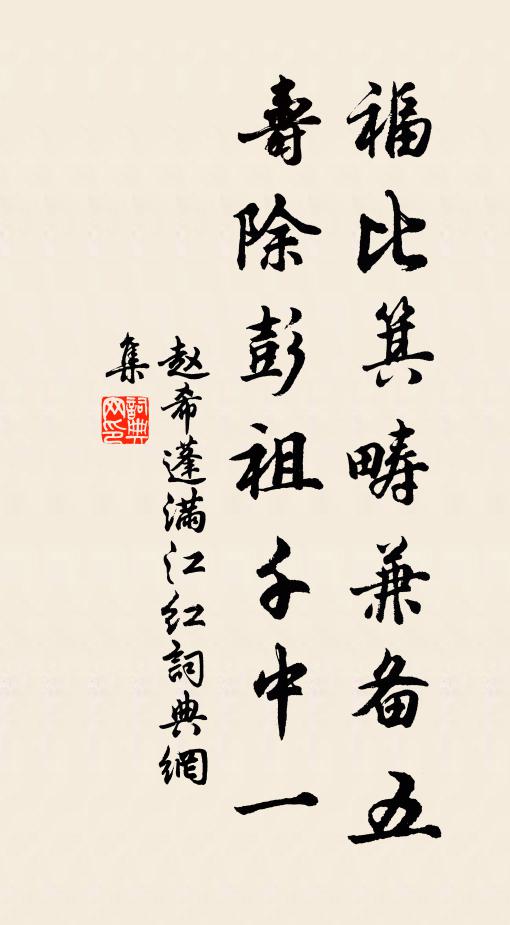 福比箕畴兼备五
壽除彭祖千中一
赵希蓬满江红詞典網
集
詞典网印